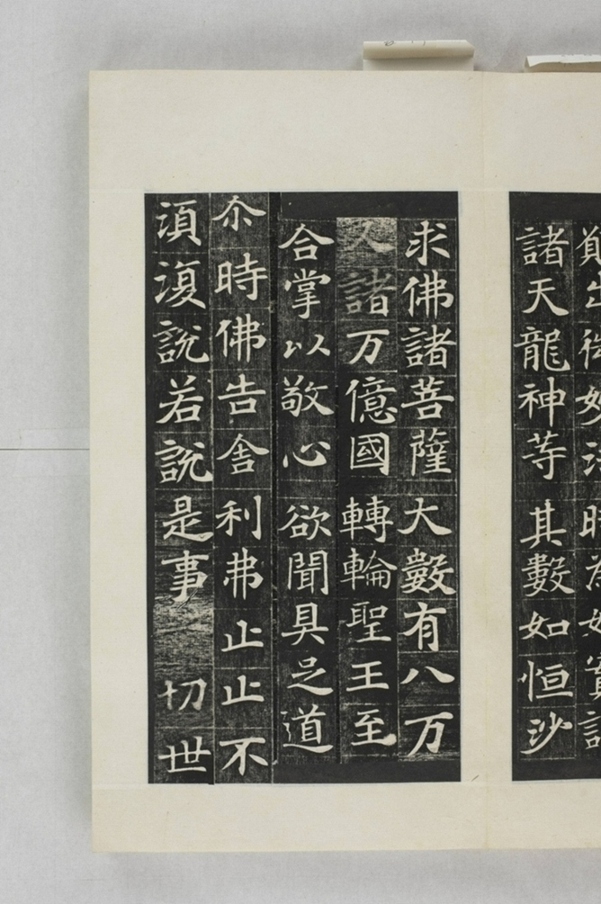 諸天龍神等其數如恒沙
求佛諸菩薩大數有八万
又諸万億國轉輪聖王至
合掌以敬心欲聞具足道
尒時佛告舍利弗止止不
湏湏說若說是事切世